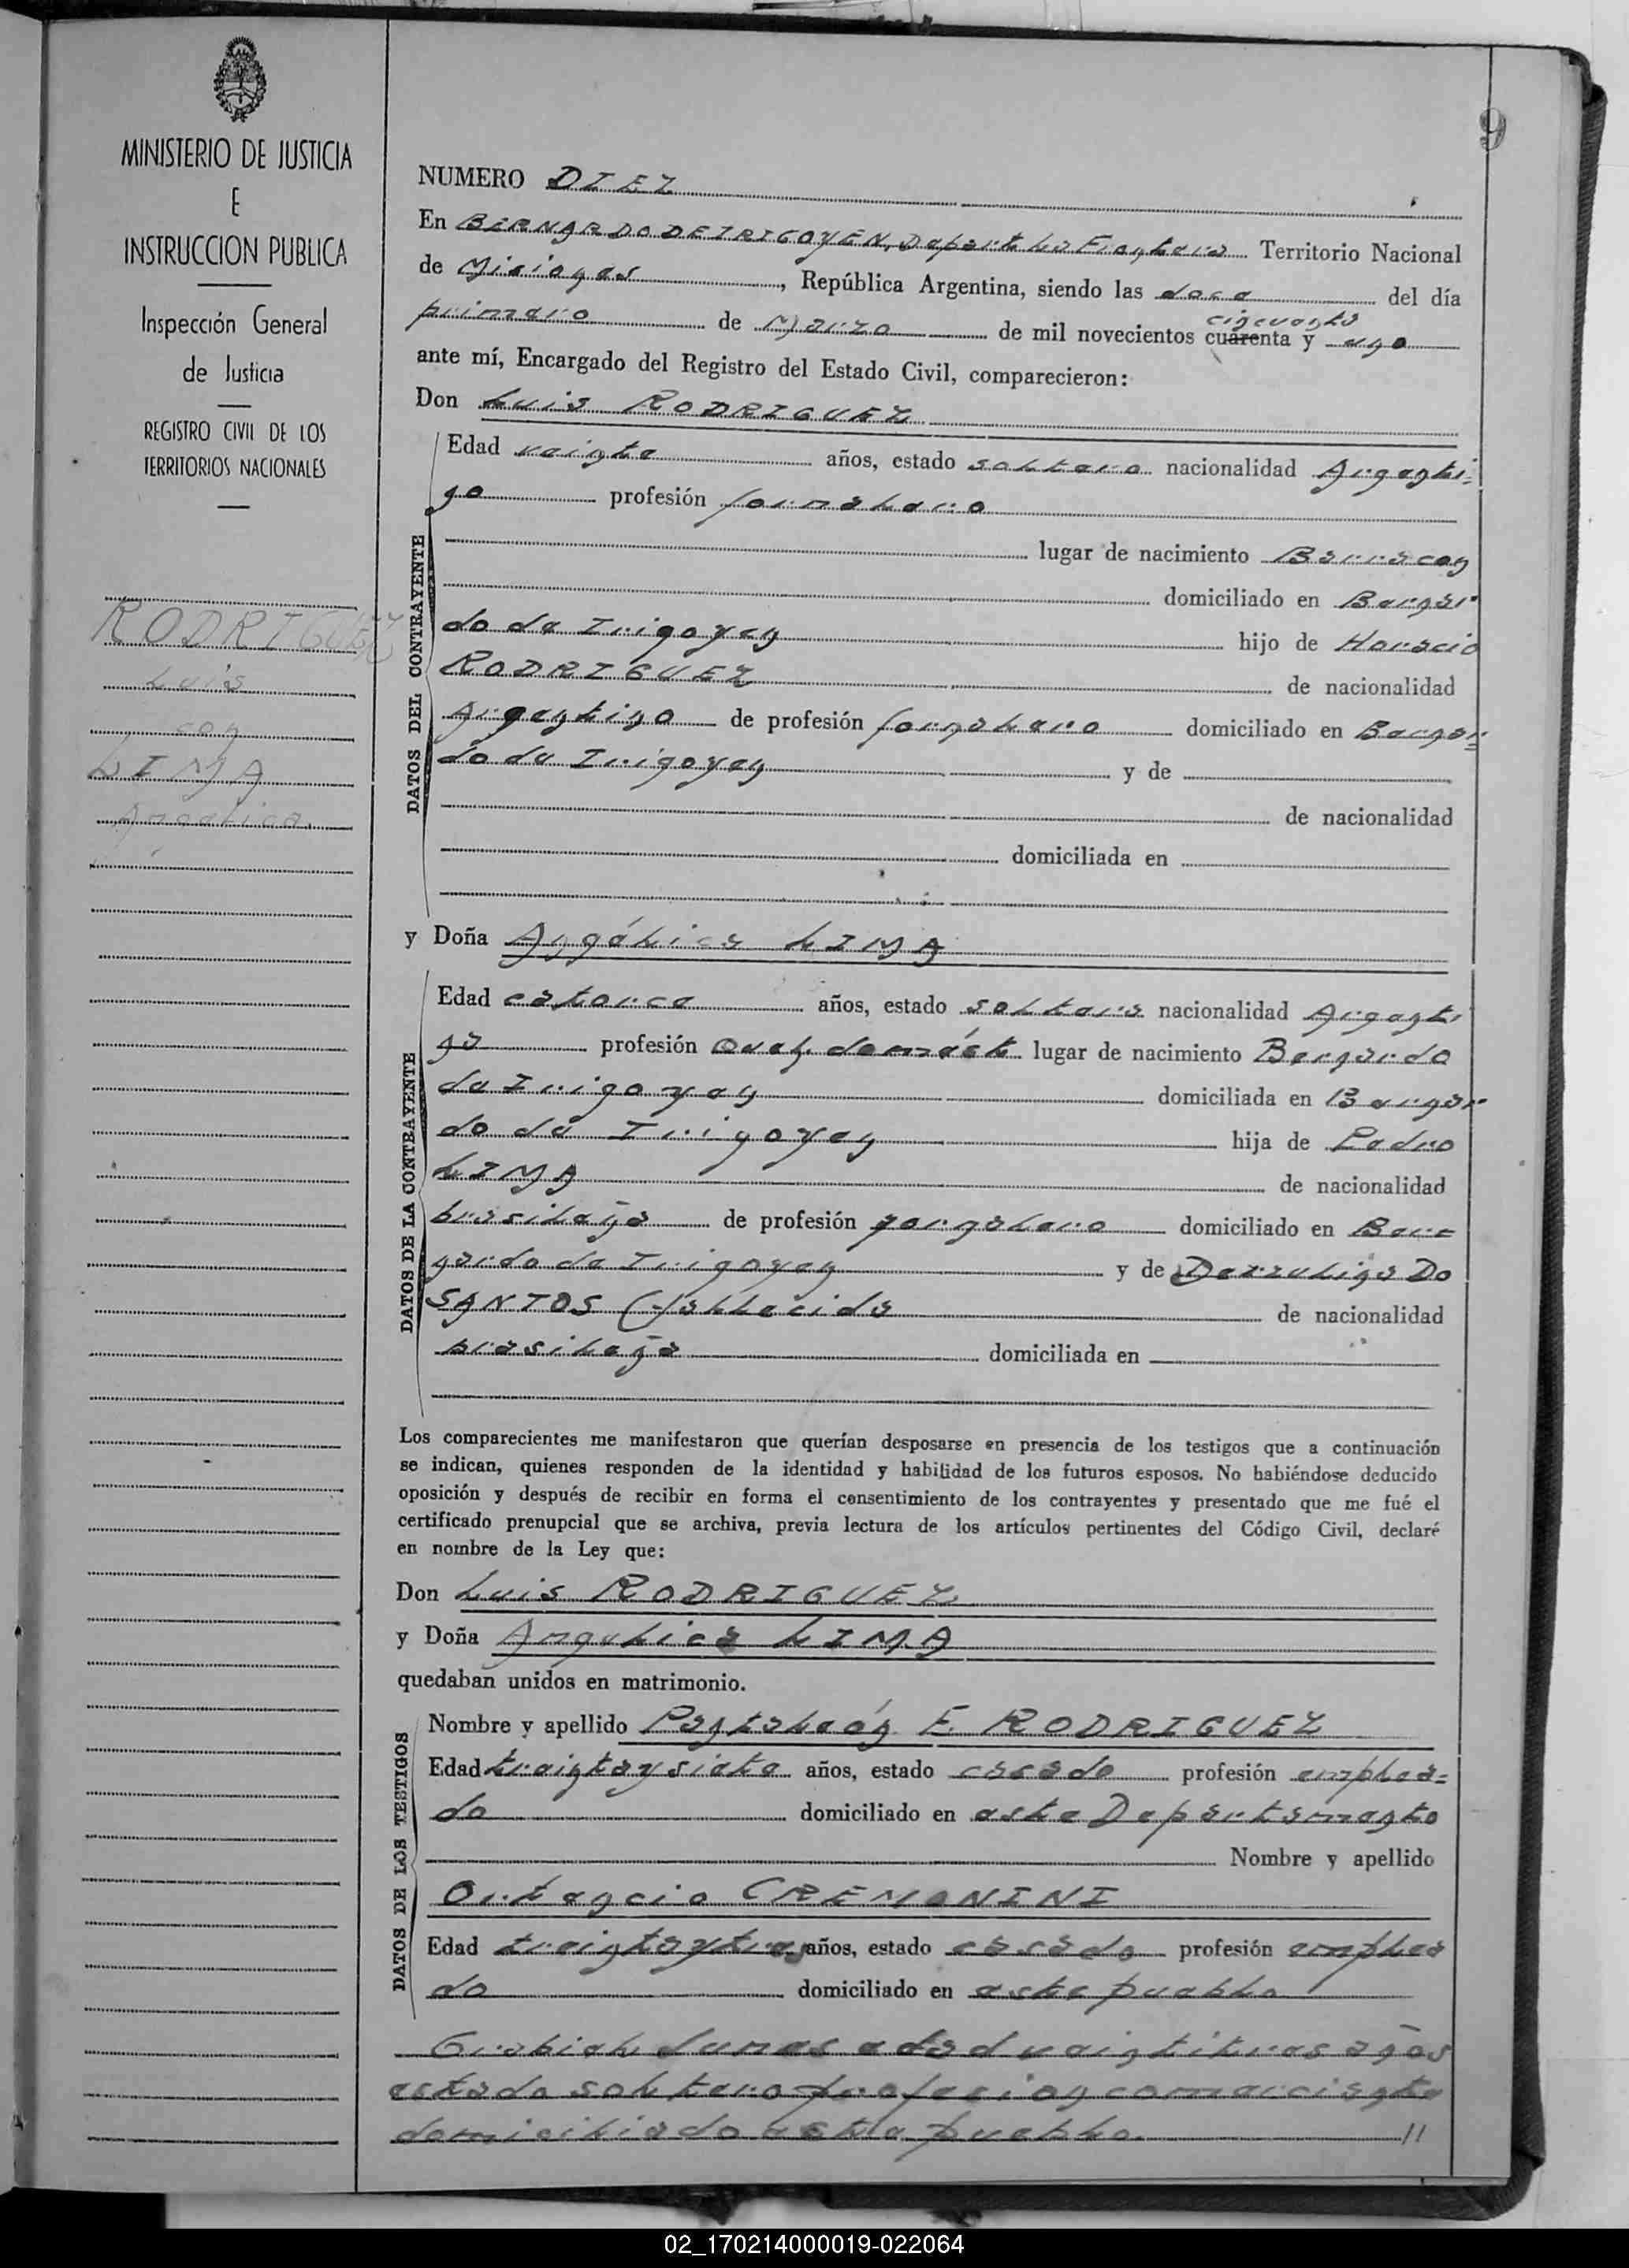 9
MINISTERIO DE JUSTICIA
E
INSTRUCCION PUBLICA
Inspección General
de Justicia
REGISTRO CIVIL DE LOS
TERRITORIOS NACIONALES
RODRIGUEZ
Luis
con
LIMA
Angelica.
NUMERO DIEZ
En BERNARDO DE IRIGOYEN, Departº Frontera Territorio Nacional
de Misiones, República Argentina, siendo las doce del día
primero de Marzo de mil novecientos cuarenta cincuenta y uno
ante mí, Encargado del Registro del Estado Civil, comparecieron:
Don Luis RODRIGUEZ
DATOS DEL CONTRAYENTE
Edad veinte años, estado soltero nacionalidad Argenti-
no profesión jornalero
lugar de nacimiento Barracon
domiciliado en Bernar
do de Irigoyen hijo de Horacio
RODRIGUEZ de nacionalidad
Argentino de profesión jornalero domiciliado en Bernar-
do de Irigoyen y de
de nacionalidad
domiciliada en
y Doña Angélica LIMA
DATOS DE LA CONTRAYENTE
Edad catorce años, estado soltera nacionalidad Argenti
na profesión Queh. domést. lugar de nacimiento Bernardo
de Irigoyen domiciliada en Bernar
do de Irigoyen hija de Pedro
LIMA de nacionalidad
brasileña de profesión jornalero domiciliado en Ber-
nardo de Irigoyen y de Do
SANTOS (fallecida de nacionalidad
brasileña domiciliada en
Los comparecientes me manifestaron que querían desposarse en presencia de los testigos que a continuación
se indican, quienes responden de la identidad y habilidad de los futuros esposos. No habiéndose deducido
oposición y después de recibir en forma el consentimiento de los contrayentes y presentado que me fué el
certificado prenupcial que se archiva, previa lectura de los artículos pertinentes del Código Civil, declaré
en nombre de la Ley que:
Don Luis RODRIGUEZ
y Doña Angelica LIMA
quedaban unidos en matrimonio.
DATOS DE LOS TESTIGOS
Nombre y apellido Pantaleón F. RODRIGUEZ
Edad treinta y siete años, estado casado profesión emplea-
do domiciliado en este Departamento
Nombre y apellido
Ortencio CREMONINI
Edad treinta y tres años, estado casado profesión emplea
do domiciliado en este pueblo
edad veintitres años
estado soltero profesion comerciante
domiciliado este pueblo. //
02_170214000019-022064